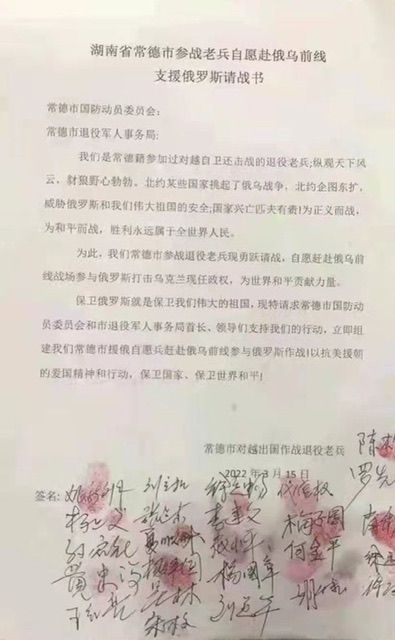 湖南省常德市参战老兵自愿赴俄乌前线
支援俄罗斯请战书
常德市国防动员委员会：
常德市退役军人事务局：
我们是常德籍参加过对越自卫还击战的退役老兵;纵观天下风
云，豺狼野心勃勃。北约某些国家挑起了俄乌战争，北约企图东扩，
威胁俄罗斯和我们伟大祖国的安全;国家兴亡匹夫有责!为正义而战，
为和平而战，胜利永远属于全世界人民。
为此，我们常德市参战退役老兵现勇跃请战，自愿赶赴俄乌前
线战场参与俄罗斯打击乌克兰现任政权，为世界和平贡献力量。
保卫俄罗斯就是保卫我们伟大的祖国，现特请求常德市国防动
员委员会和市退役军人事务局首长、领导们支持我们的行动，立即组
建我们常德市援俄自愿兵赶赴俄乌前线参与俄罗斯作战!以抗美援朝
的爱国精神和行动，保卫国家、保卫世界和平!
常德市对越出国作战退役老兵
2022 年 3 月 15 日
签名: